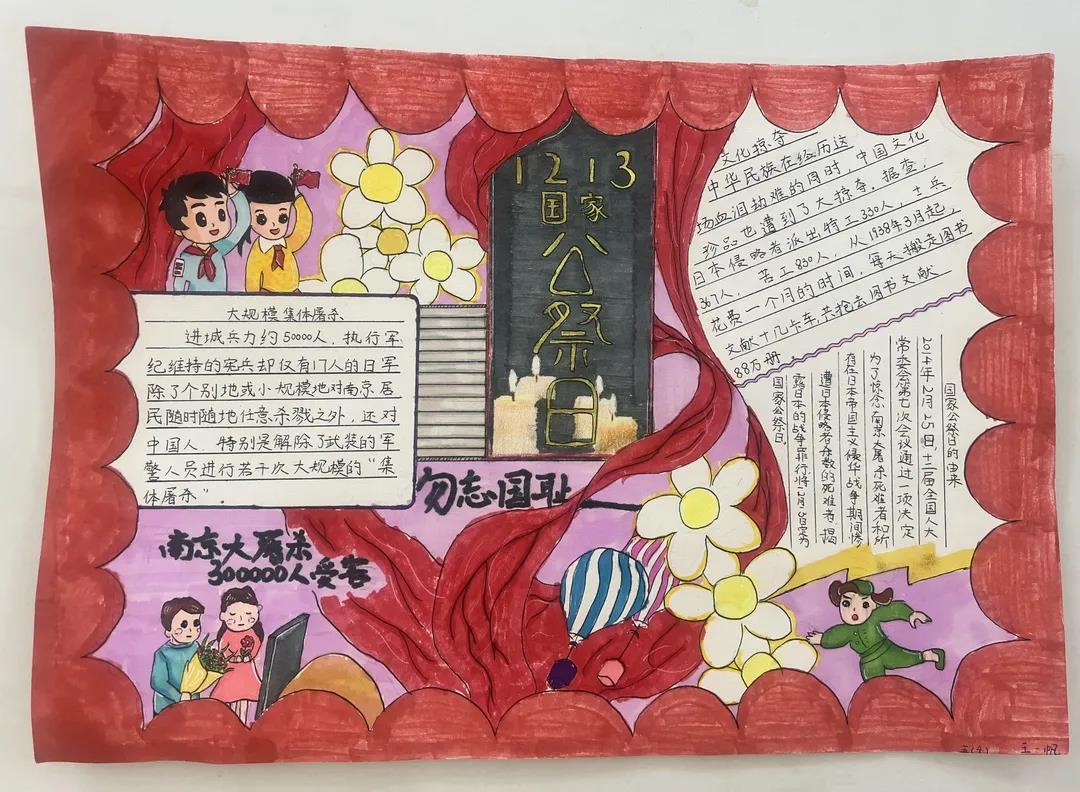 12 13
国家
公
祭
日
大规模集体屠杀、
进城兵力约50000人，执行军
纪维持的宪兵却仅有17人的日军
除了个别地或小规模地对南京居
民随时随地任意杀戮之外，还对
中国人，特别是解除了武装的军
警人员进行若干次大规模的“集
体屠杀”。
勿志国耻
南京大屠杀
300000人受害
文化掠夺
中华民族在经历这
场血泪劫难的同时，中国文化
珍品也遭到了大掠夺。据查，
日本侵略者派出特工330人，士兵
367人，苦工830人，从1938年3月起，
花费一个月的时间，每天搬走图书
文献十几卡车，共抢去图书文献
88万册。
国家公祭日的由来
2014年2月25日，十二届全国人大
常委会第七次会议通过一项决定
为了悼念南京大屠杀死难者和所
有在日本帝国主义侵华战争期间惨
遭日本侵略者杀戮的死难者，揭
露日本的战争罪行将12月13日定为
国家公祭日。
王一帆